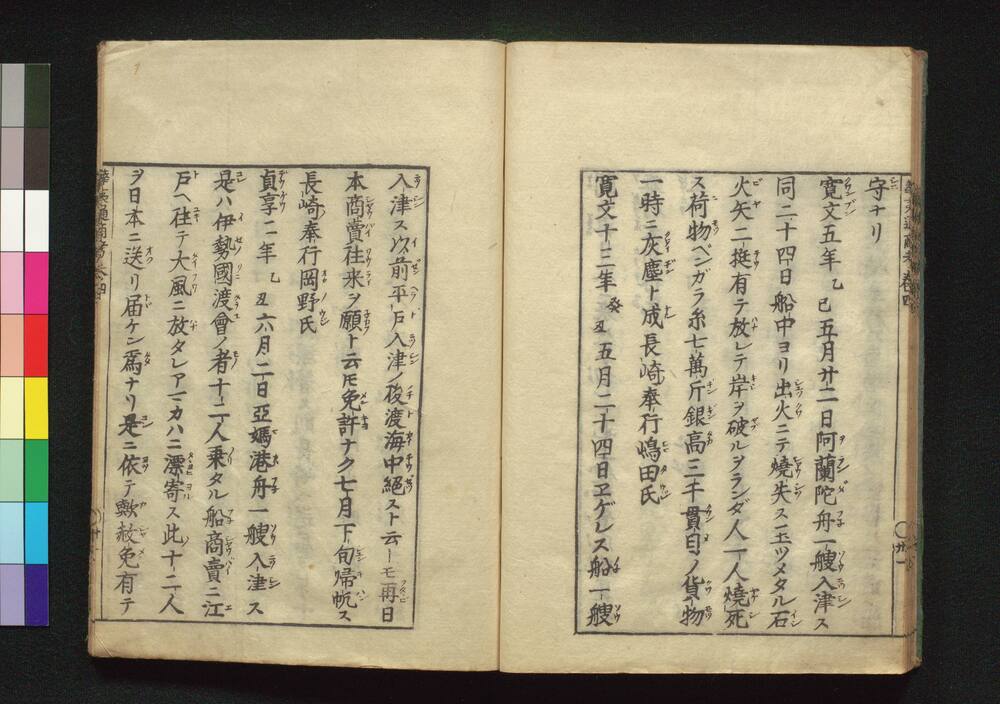 守ナリ
寛文五年乙巳五月廿二日阿蘭陀舟一艘入津ス
同二十四日船中ヨリ出火ニテ燒失ス玉ツメタル石
火矢二挺有テ放レテ岸ヲ破ルヲランダ人一人燒死
ス荷物ベンガラ糸七萬斤銀高三千貫目ノ貨物
一時ニ灰塵ト成長崎奉行嶋田氏
寛文十三年癸丑五月二十四日ヱゲレス船一艘
入津ス以前平戸入津ノ後渡海中絕スト云ヒモ再日
本商賣往来ヲ願ト云ヒ免許ナク七月下旬帰帆ス
長崎奉行岡野氏
貞享二年乙丑六月二日亞媽港舟一艘入津ス
是ハ伊勢國渡會ノ者十二人乗タル船商賣ニ江
戸ヘ往テ大風ニ放タレアマカハニ漂寄ス此十二人
ヲ日本ニ送リ届ケン爲ナリ是ニ依テ歟赦免有テ